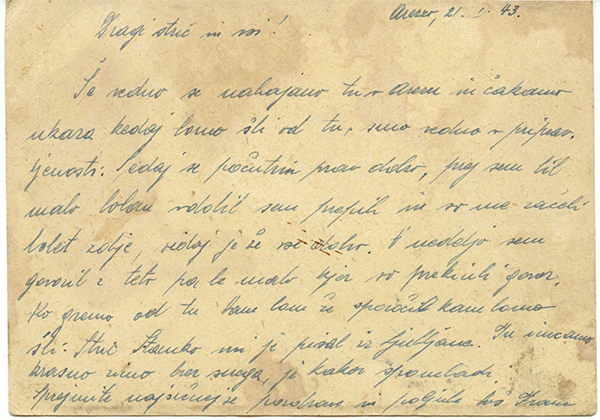 Arezzo, 21. I. 43.
Dragi stric in vsi!
Še vedno se nahajamo tu v Arezu in čakamo
ukaza kedaj bomo šli od tu, smo vedno v priprav-
ljenosti. Sedaj se počutim prav dobro, prej sem bil
malo bolan dobil sem prepih in so me začeli
bolet zobje, sedaj je že vse dobro. V nedeljo sem
govoril z teto pa le malo ker so prekinili govor.
Ko gremo od tu Vam bom že sporočil kam bomo
šli. Stric Stanko mi je pisal iz Ljubljane. Tu imamo
krasno zimo brez snega, je kakor spomladi
sprejmite najsrčnejše pozdrave in poljube Vaš Franc